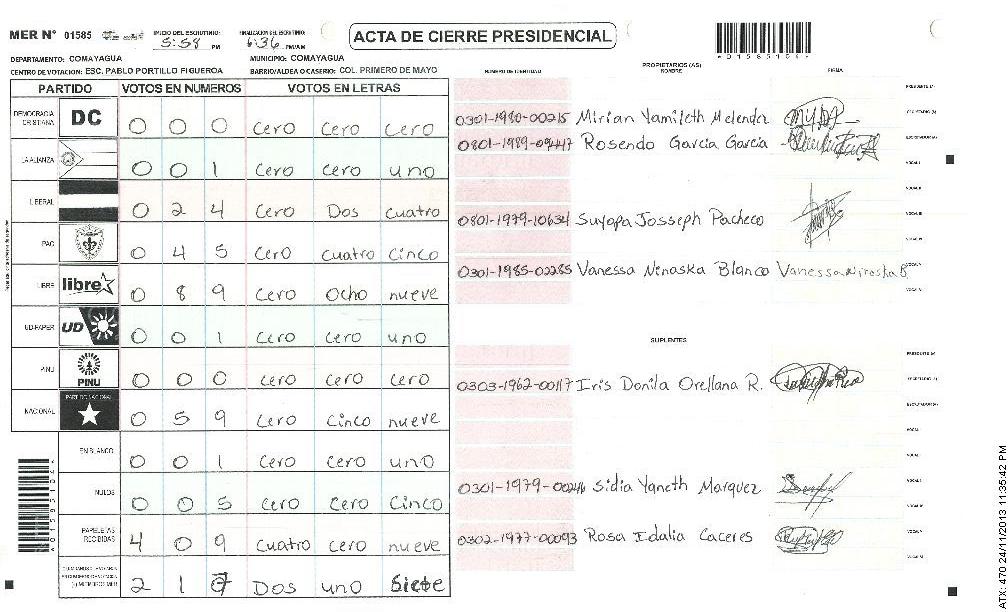 MER N° 01585 INICIO DEL ESCRUTINIO: 5:58 PM FINALIZACION DEL ESCRUTINIO: 6:36 PM/AM
ACTA DE CIERRE PRESIDENCIAL
DEPARTAMENTO: COMAYAGUA MUNICIPIO: COMAYAGUA
CENTRO DE VOTACION: ESC. PABLO PORTILLO FIGUEROA BARRIO/ALDEA O CASERIO: COL. PRIMERO DE MAYO
PARTIDO VOTOS EN NUMEROS VOTOS EN LETRAS
DEMOCRACIA CRISTIANA DC 0 0 0 Cero Cero Cero
LA ALIANZA 0 0 1 Cero Cero uno
LIBERAL 0 2 4 Cero Dos cuatro
PAC 0 4 5 Cero cuatro Cinco
LIBRE libre 0 8 9 Cero Ocho nueve
UD-FAPER UD 0 0 1 Cero Cero uno
PINU PINU 0 0 0 Cero Cero Cero
NACIONAL PARTIDO NACIONAL 0 5 9 Cero Cinco nueve
EN BLANCO 0 0 1 Cero Cero uno
NULOS 0 0 5 Cero Cero Cinco
PAPELETAS RECIBIDAS 4 0 9 Cuatro Cero nueve
2 1 7 Dos uno Siete
NUMERO DE IDENTIDAD
PROPIETARIOS (AS)
NOMBRE
FIRMA
0301-1980-00215 Mirian Yamileth Melendez
0801-1989-09447 Rosendo Garcia Garcia
0801-1979-10634 Suyapa Josseph Pacheco
0301-1985-02285 Vanessa Niraska Blanco Vanessa Niraska B.
SUPLENTES
0303-1962-00117 Iris Donila Orellana R.
0301-1979-00246 Sidia Yaneth Marquez
0302-1977-00093 Rosa Idalia Caceres
ATX: 470 24/11/2013 11:35:42 PM